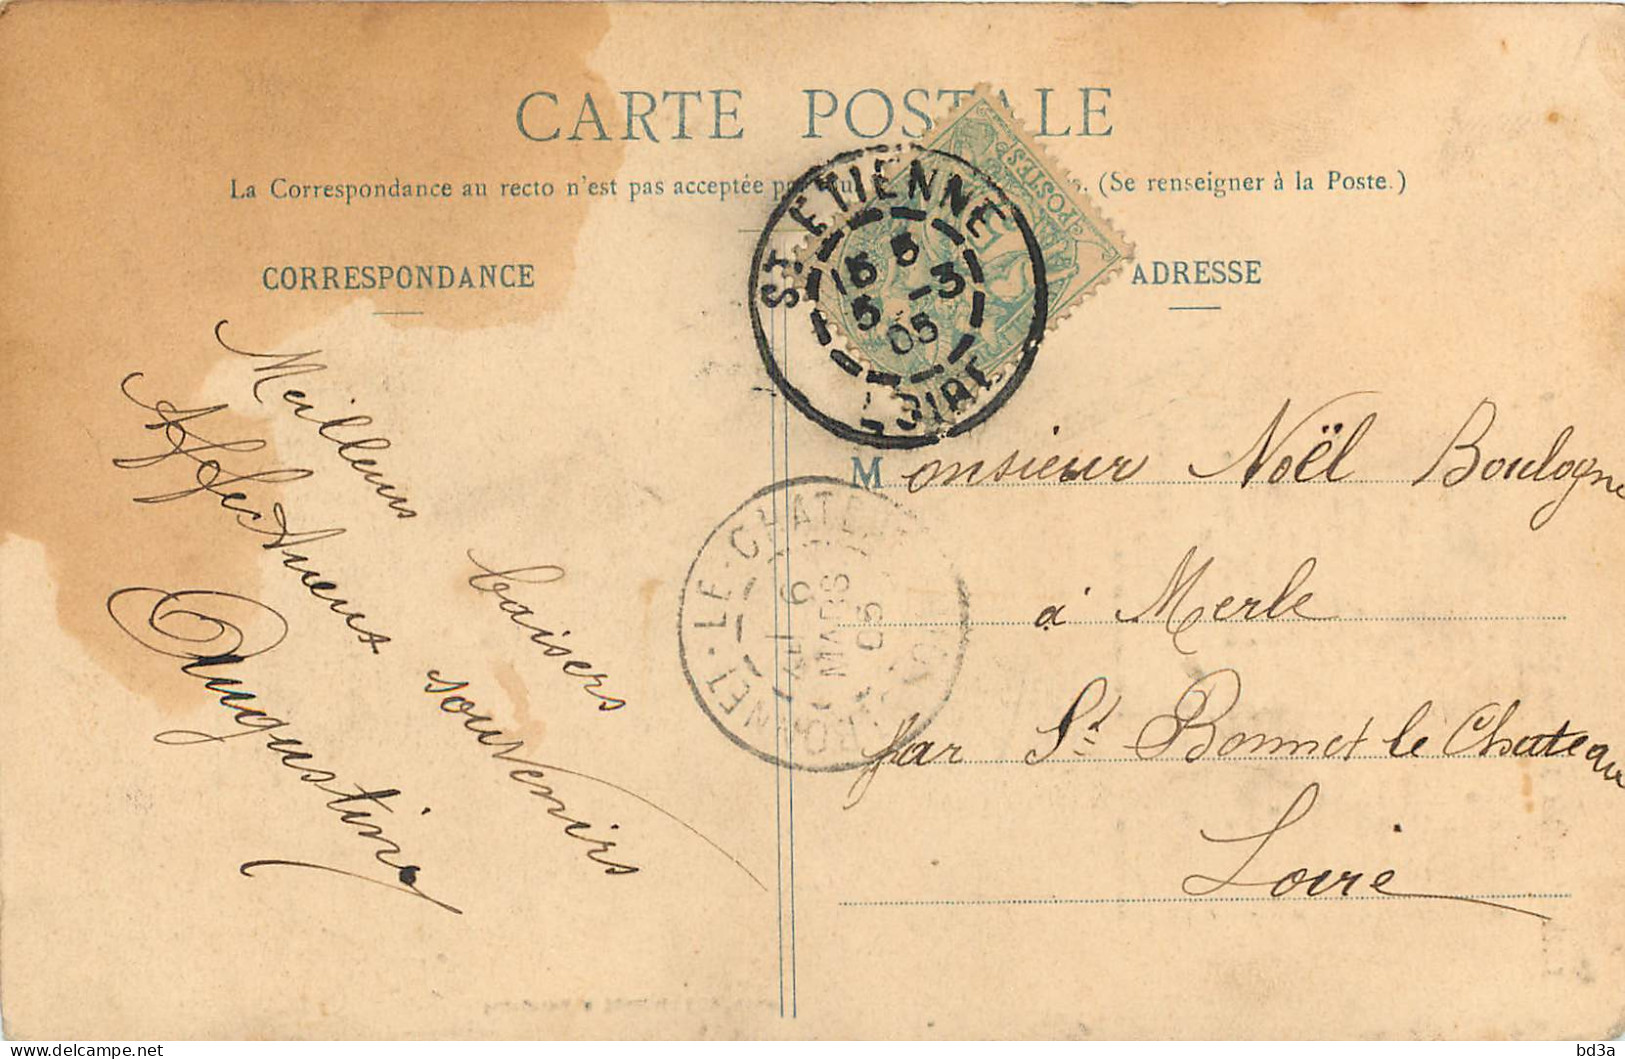 CARTE POSTALE
La Correspondance au recto n'est pas acceptée (Se renseigner à la Poste.)
CORRESPONDANCE
ADRESSE
POSTES
5
ST ETIENNE
15 5
5 -3
05
LOIRE
Meilleurs baisers
Affectueux souvenirs
Augustine
Monsieur Noël Boulogne
à Merle
par St Bonnet le Chateau
Loire
BONNET-LE-CHATEAU
6
MARS
05
bd3a